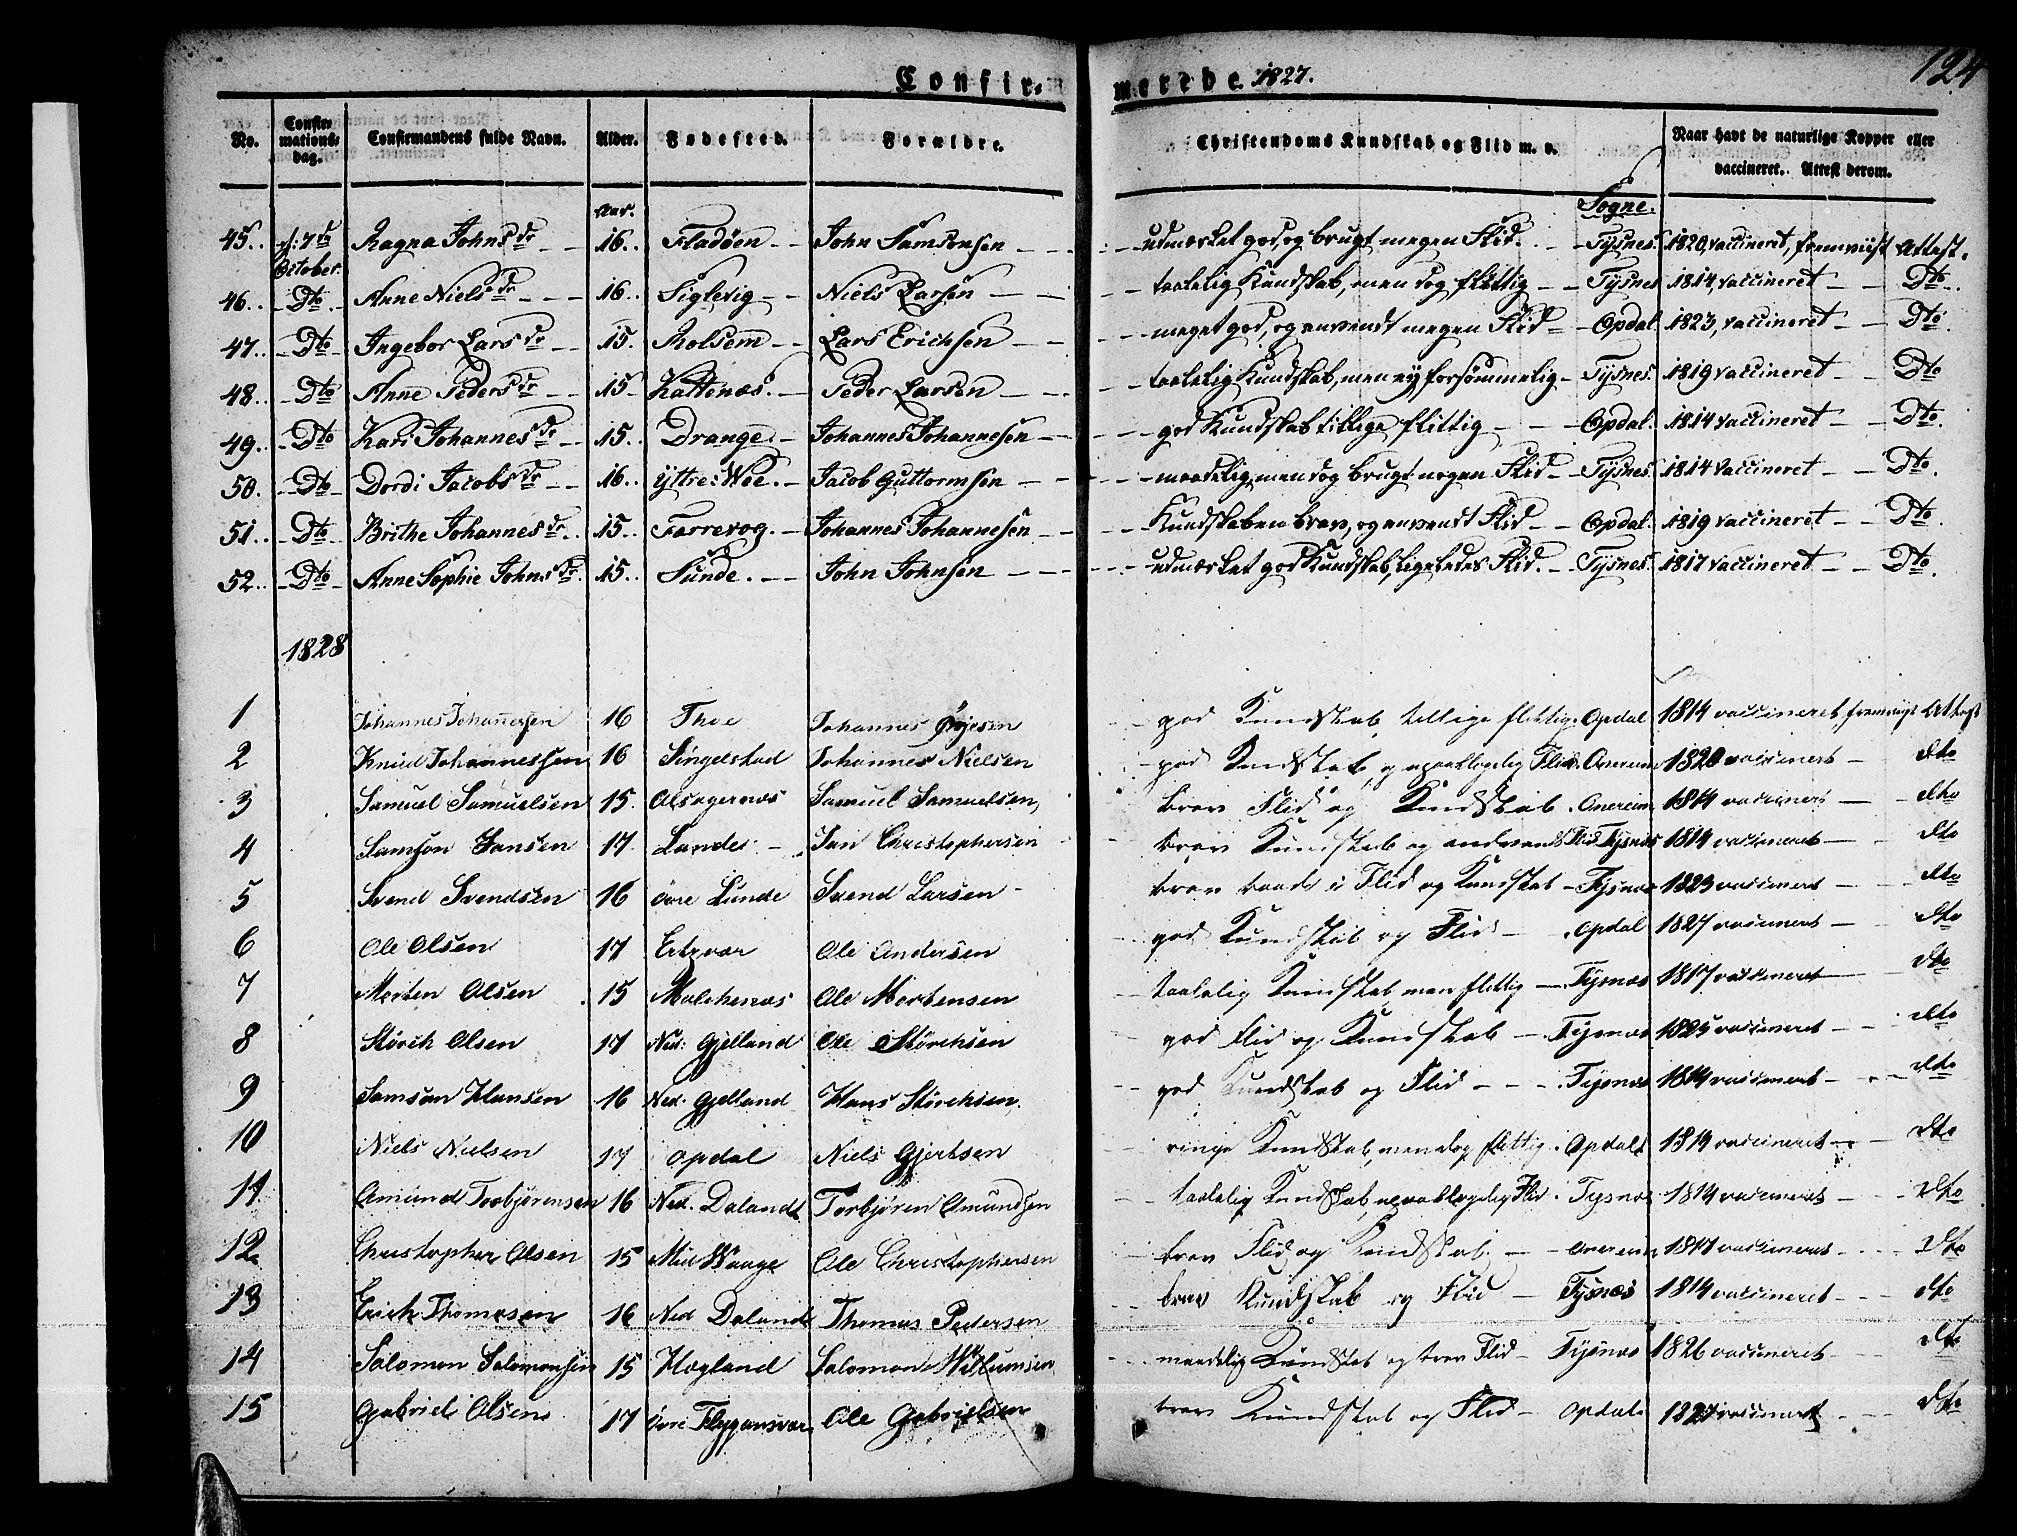 124
Confir- merede. 1827.
No. Confirmations-dag. Confirmandens fulde Navn. Alder. Fødested. Forældre. Christendoms Kundskab og Flid m. v. Naar havt de naturlige Kopper eller vaccineret. Attest derom.
Aar. Sogne.
45. 7de October. Ragna Johnsdr 16. Fladøen John Samsonsen udmærket god, og brugt megen Flid. Tysnes. 1820, vaccineret, fremviist Attest.
46. Dto Anne Nielsdr 16. Siglevig Niels Larsen taalelig Kundskab, men dog flittig Tysnes 1814, vaccineret Dto
47. Dto Ingebor Larsdr 15. Rolsem Lars Erichsen meget god, og anvendt megen Flid Opdal. 1823, vaccineret Dto
48. Dto Anne Pedersdr 15 Kattenæs. Peder Larsen taalelig Kundskab, men ey forsømmelig Tysnes. 1819 vaccineret Dto
49. Dto Kari Johannesdr 15. Drange. Johannes Johannesen god Kundskab tillige flittig Opdal. 1814 vaccineret Dto
50. Dto Dordi Jacobsdr 16. yttre: Wee. Jacob Guttormsen maadelig, men dog brugt nogen Flid Tysnes. 1814 vaccineret Dto.
51. Dto Brithe Johannesdr 15. Farrevog. Johannes Johannesen Kundskaben brav, og anvendt Flid Opdal. 1819 vaccineret Dto
52. Dto Anne Sophie Johnsdr. 15. Sunde. John Johnsen udmærket god Kundskab, ligeledes Flid. Tysnes. 1817 vaccineret Dto.
1828
1 Johannes Johannessen 16 Thoe Johannes god Kundskab, tillige flittig. Opdal 1814 vaccineret fremviist Attest
2 Knud Johannessen 16 Singelstad Johannes Nielsen god Kundskab, og upaaklagelig Flid. Onereim 1820 vaccineret dto
3 Samuel Samuelsen 15. Alsagernæs Samuel Samuelsen, brav Flid og Kundskab. Onereim 1814 vaccineret dto
4 Samson Jansen 17. Landes Jan Christophersen brav Kundskab og andvendt Flid Tysnæs 1814 vaccineret dto
5 Svend Svendsen 16 övre Lunde Svend Larsen brav baade i Flid og Kundskab Tysnæs 1823 vaccineret dto
6 Ole Olsen 17 Ole Andersen god Kundskab og Flid Opdal 1827 vaccineret dto
7 Morten Olsen 15 Malchenæs Ole Mortensen taalelig Kundskab, men flittig Tysnæs 1817 vaccineret dto
8 Störch Olsen 17 Ned: Gjelland Ole Störchsen god Flid og Kundskab Tysnæs 1825 vaccineret dto
9 Samson Hansen 16 Ned. Gjelland Hans Störchsen. god Kundskab og Flid Tysnæs 1814 vaccineret dto
10 Niels Nielsen 17 Opdal Niels Gjertsen ringe Kundskab, men dog flittig. Opdals 1814 vaccineret dto
11 Amund Torbjörensen 16 Ned. Daland Torbjören Amundsen taalelig Kundskab, upaaklagelig Flid. Tysnæs 1814 vaccineret dto
12. Christopher Olsen 15 Mid Waage Ole Christophersen brav Flid og Kundskab. Onereim 1817 vaccineret dto
13 Erich Thomesen 16 Ned Daland Thomas Pedersen brav Kundskab og Flid Tysnæs 1814 vaccineret dto
14 Salomon Salomonsen 15 Hogland Salomon maadelig Kundskab og brav Flid Tysnæs 1826 vaccineret dto
15 Gabriel Olsen 17 Ole Gabrielsen brav Kundskab og Flid Opdals 1827 vaccineret dto